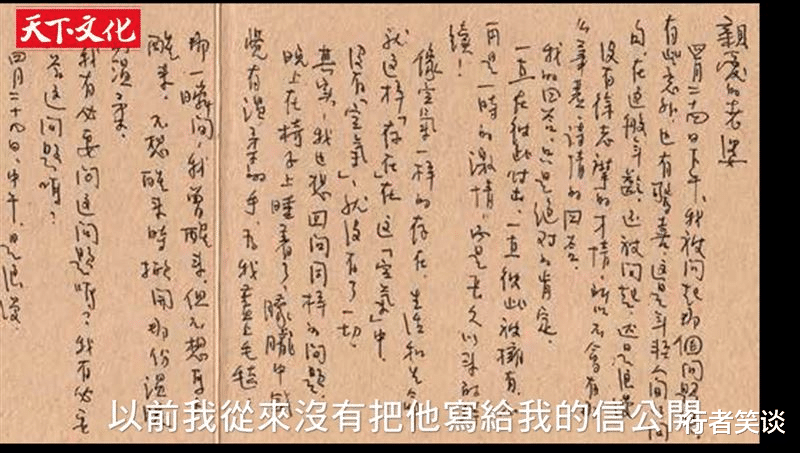 天下文化
親愛的老婆
四月二十四日下午,我被問起那個問題,
有些意外,也有驚喜。這是年輕人間的問
句,在這般年齡,還被問起,还是浪漫
沒有徐志摩的才情,所以不會有
華麗、詩情的回答。
我的回答,只是絕對的肯定。
一直在彼此付出,一直彼此被擁有,不
再是一時的激情,而是長久以來的
續!
像空氣一樣的存在,生活和生命
就這樣「存在」在這「空氣」中
沒有「空氣」,就沒有了一切。
其實,我也想回問同樣的問題
晚上在椅子上睡着了,朦朧中感
覺有溫柔的手,為我蓋上毛毯
那一瞬間,我曾醒來,但不想真
醒來,不想醒來時撕開那份溫
溫柔。
我有必要問這問題嗎?我有必要
答這問題嗎?
四月二十九日,中午,是浪漫。
以前我從來沒有把他寫給我的信公開
行者笑谈